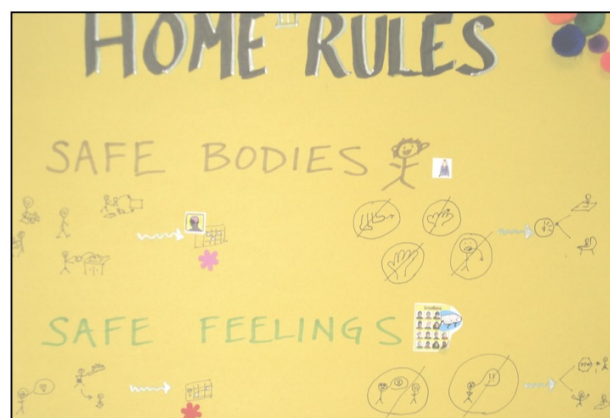 HOME RULES
SAFE BODIES
SAFE FEELINGS